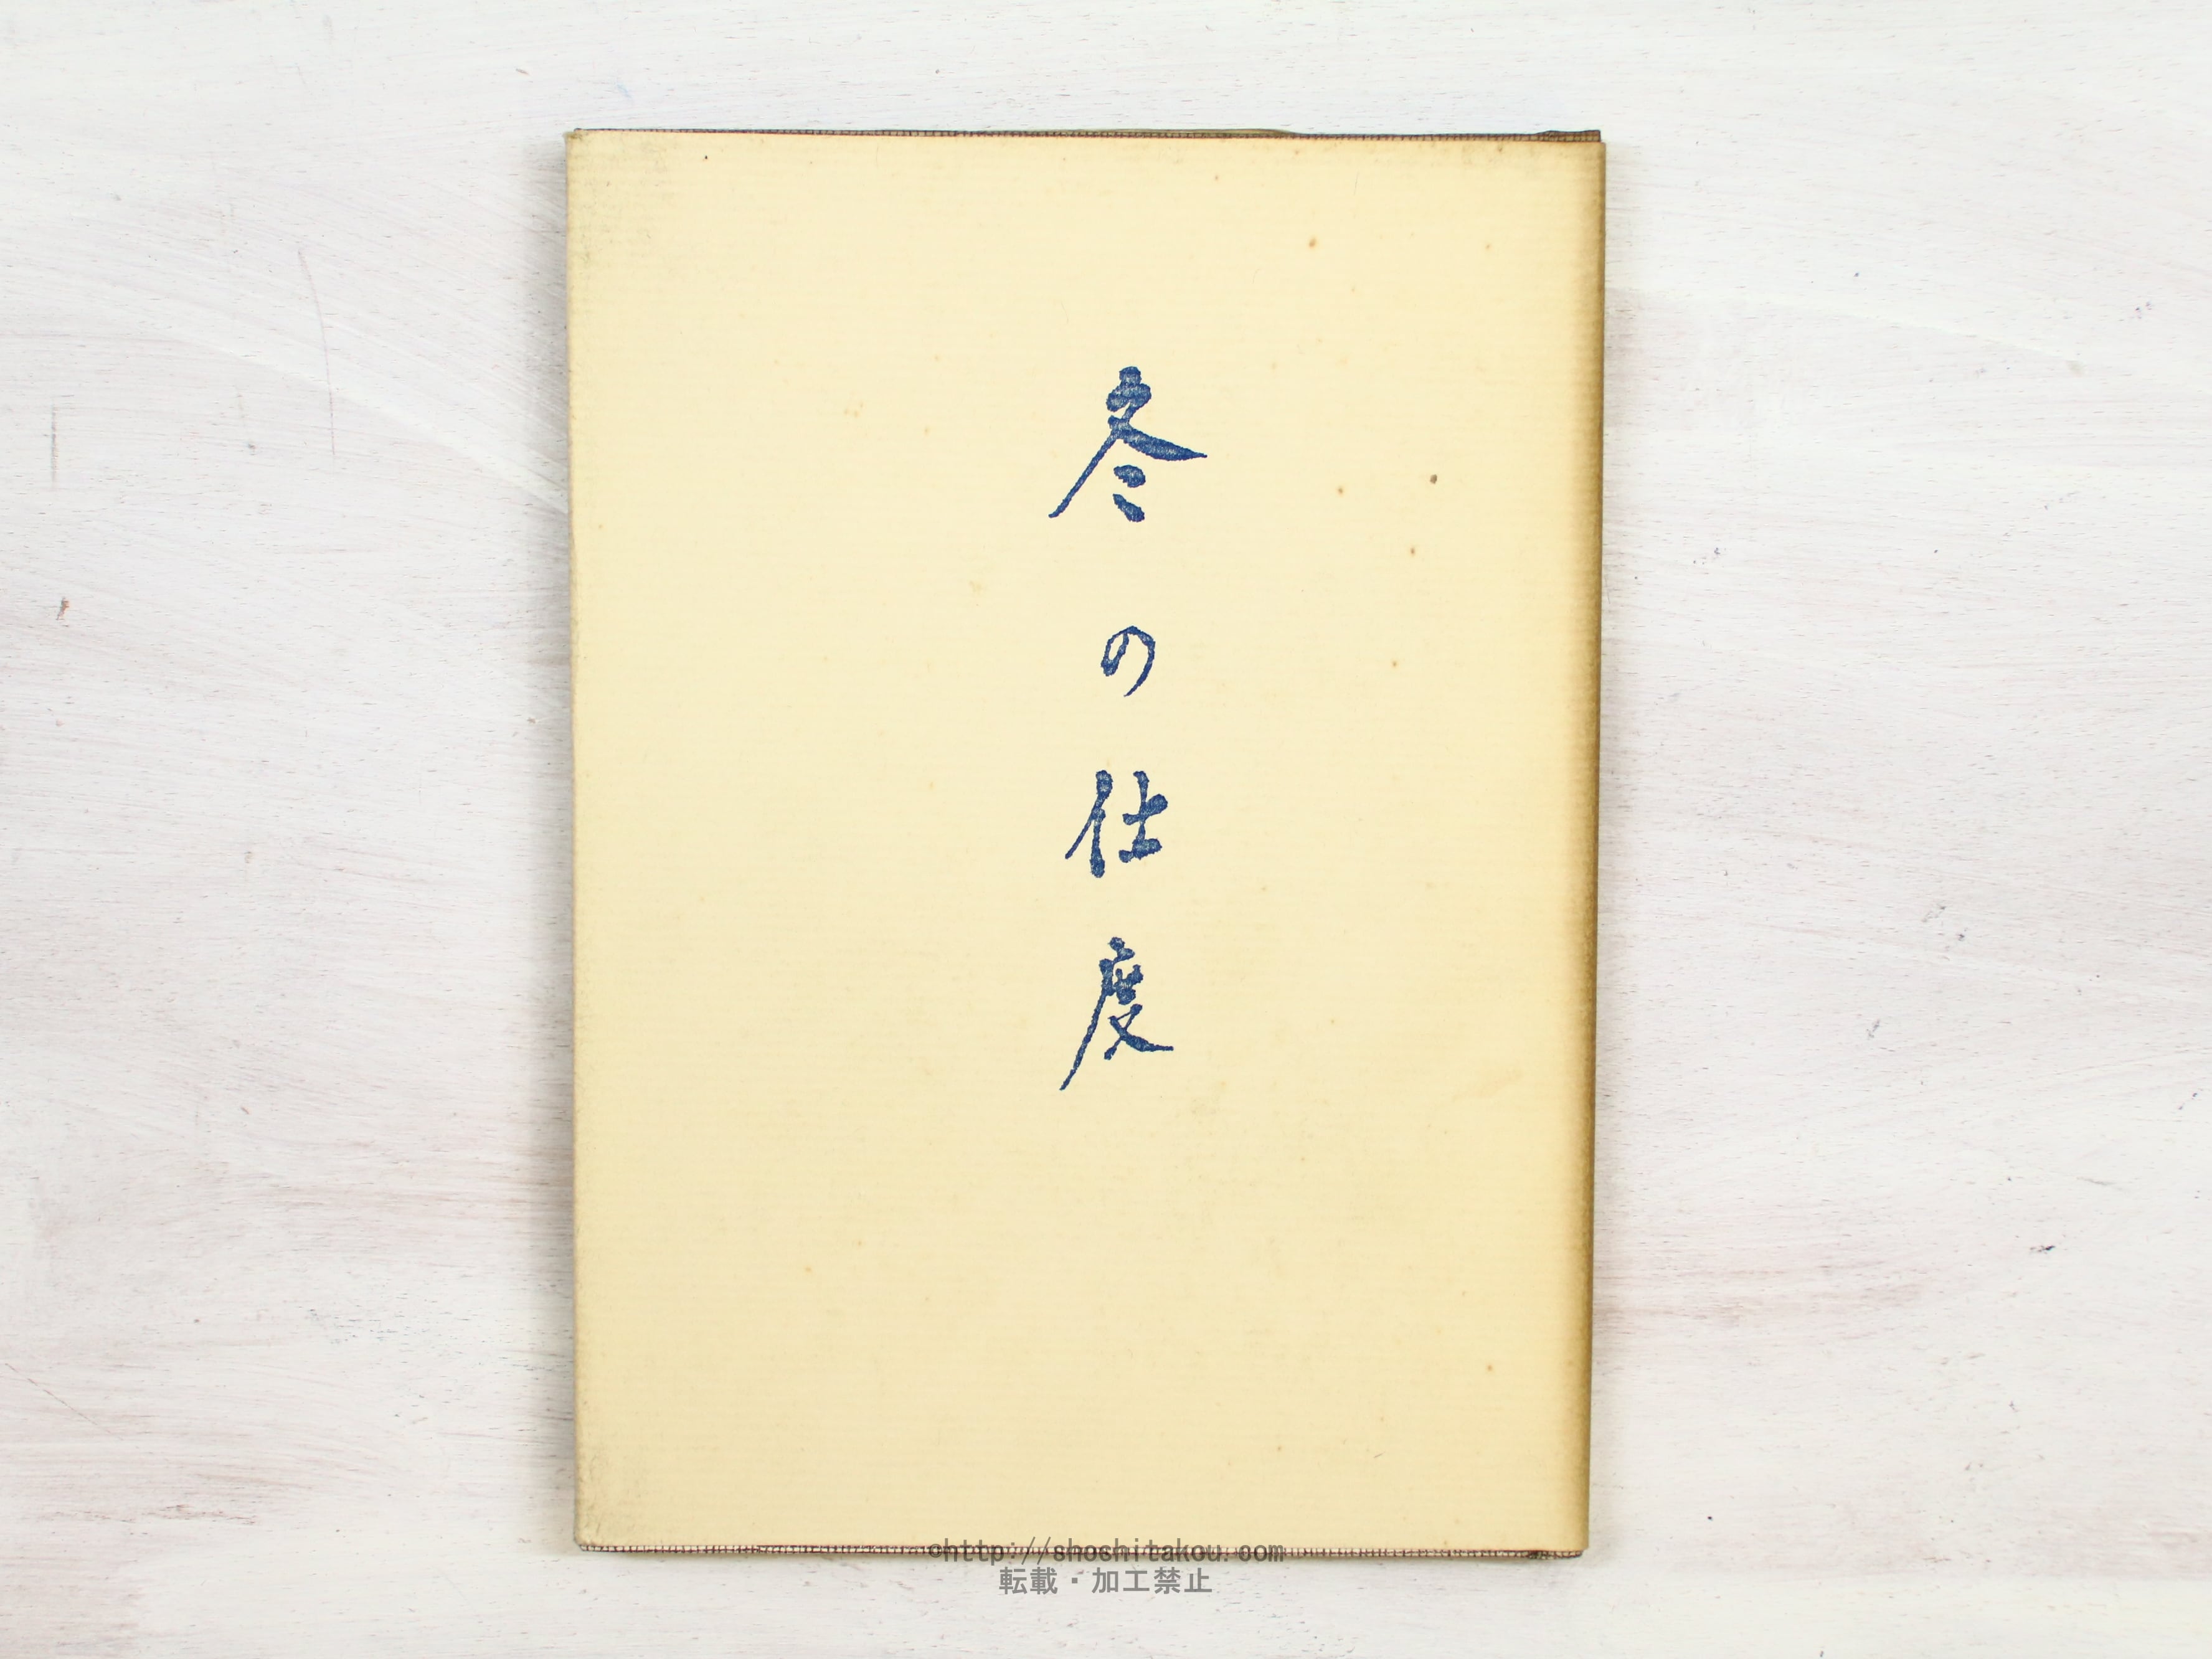 冬の仕度
©http://shoshitakou.com
転載・加工禁止